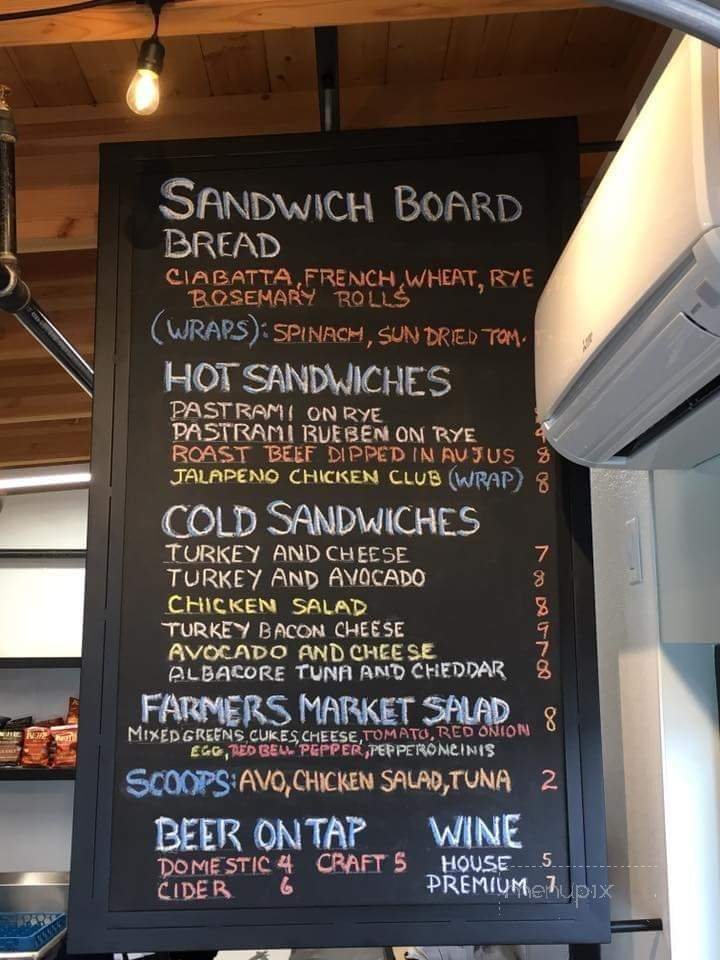 SANDWICH BOARD
BREAD
CIABATTA, FRENCH, WHEAT, RYE
ROSEMARY ROLLS
(WRAPS): SPINACH, SUN DRIED TOM.
HOT SANDWICHES
PASTRAMI ON RYE
PASTRAMI RUEBEN ON RYE
ROAST BEEF DIPPED IN AU JUS 8
JALAPENO CHICKEN CLUB (WRAP) 8
COLD SANDWICHES
TURKEY AND CHEESE 7
TURKEY AND AVOCADO 8
CHICKEN SALAD 8
TURKEY BACON CHEESE 9
AVOCADO AND CHEESE 7
ALBACORE TUNA AND CHEDDAR 8
FARMERS MARKET SALAD 8
MIXED GREENS, CUKES, CHEESE, TOMATO, RED ONION
EGG, RED BELL PEPPER, PEPPERONCINIS
SCOOPS: AVO, CHICKEN SALAD, TUNA 2
BEER ON TAP WINE
DOMESTIC 4 CRAFT 5 HOUSE 5
CIDER 6 PREMIUM 7
menupix